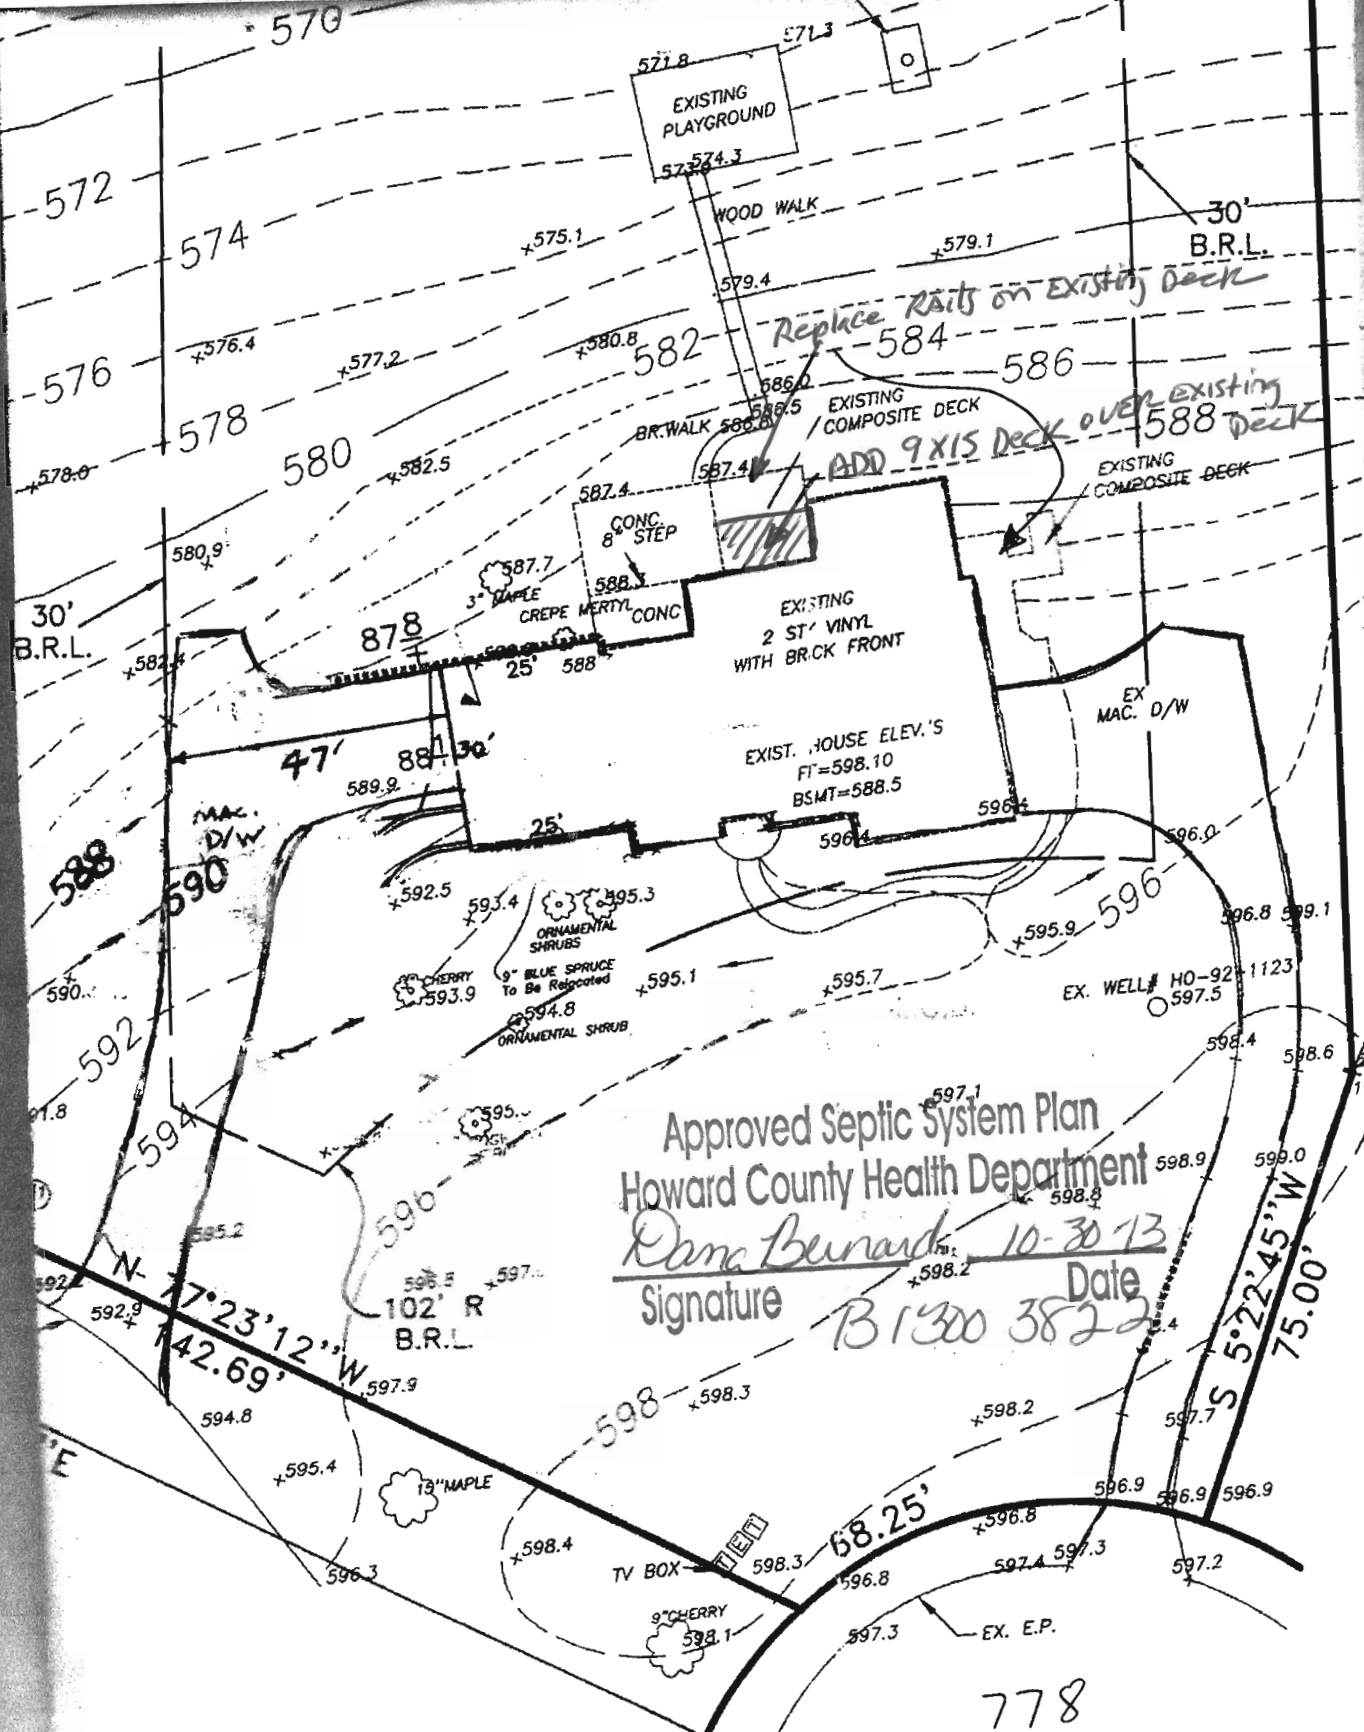 570
571.3
571.8
EXISTING
PLAYGROUND
574.3
572
574
WOOD WALK
30'
B.R.L.
575.1
579.1
579.4
Replace Rails on Existing Deck
576
576.4
577.2
580.8
582
584
586
586.0
586.5
EXISTING
COMPOSITE DECK
ADD 9X15 Deck OVER Existing
Deck
588
578
580
BR.WALK
578.0
582.5
587.4
587.4
EXISTING
COMPOSITE DECK
CONC.
8" STEP
580.9
587.7
588.3
3" MAPLE
CREPE MERTYL
CONC
30'
B.R.L.
EXISTING
2 ST' VINYL
WITH BRICK FRONT
878
582.4
25'
588
EX
MAC. D/W
47'
88
30'
EXIST. HOUSE ELEV.'S
FF=598.10
BSMT=588.5
589.9
MAC.
D/W
25'
596.4
596.4
596.0
588
590
592.5
593.4
595.3
ORNAMENTAL
SHRUBS
596
596.8
599.1
595.9
CHERRY
593.9
9" BLUE SPRUCE
To Be Relocated
594.8
ORNAMENTAL SHRUB
595.1
595.7
EX. WELL# HO-92-1123
597.5
590.
592
598.4
598.6
91.8
594
595.
597.1
Approved Septic System Plan
Howard County Health Department
598.9
599.0
598.8
596
595.2
Dana Bernard 10-30-13
Signature Date
B13003822
598.2
596.5
597.
592
592.9
N 77°23'12"W
142.69'
102' R
B.R.L.
S 5°22'45"W
75.00'
597.9
598.3
598
598.2
597.7
594.8
"E
595.4
15"MAPLE
596.9
596.9
596.9
68.25'
596.8
598.4
TV BOX
T E T
598.3
596.8
597.4
597.3
597.2
596.3
9"CHERRY
598.1
597.3
EX. E.P.
778